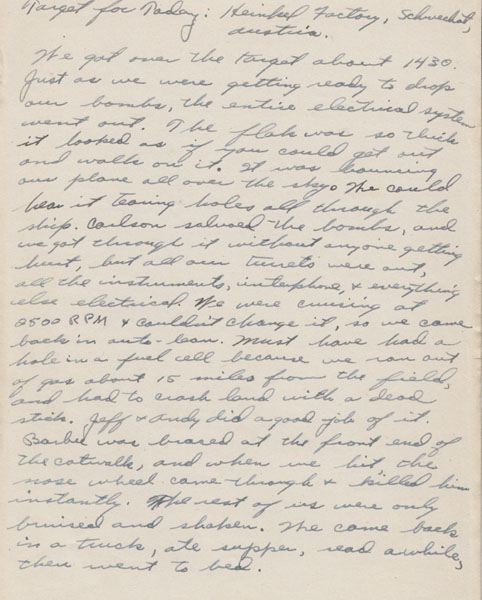 Target for Today: Heinkel Factory, Schwechat,
Austria.
We got over the target about 1430.
Just as we were getting ready to drop
our bombs, the entire electrical system
went out. The flak was so thick
it looked as if you could get out
and walk on it. It was bouncing
our plane all over the sky. We could
hear it tearing holes all through the
ship. Carlson salvoed the bombs, and
we got through it without anyone getting
hurt, but all our turrets were out,
all the instruments, interphone, & everything
else electrical. We were cruising at
2500 RPM & couldn't change it, so we came
back in auto-lean. Must have had a
hole in a fuel cell because we ran out
of gas about 15 miles from the field,
and had to crash land with a dead
stick. Jeff & Andy did a good job of it.
Barbee was braced at the front end of
the catwalk, and when we hit the
nose wheel came through & killed him
instantly. The rest of us were only
bruised and shaken. We came back
in a truck, ate supper, read awhile,
then went to bed.